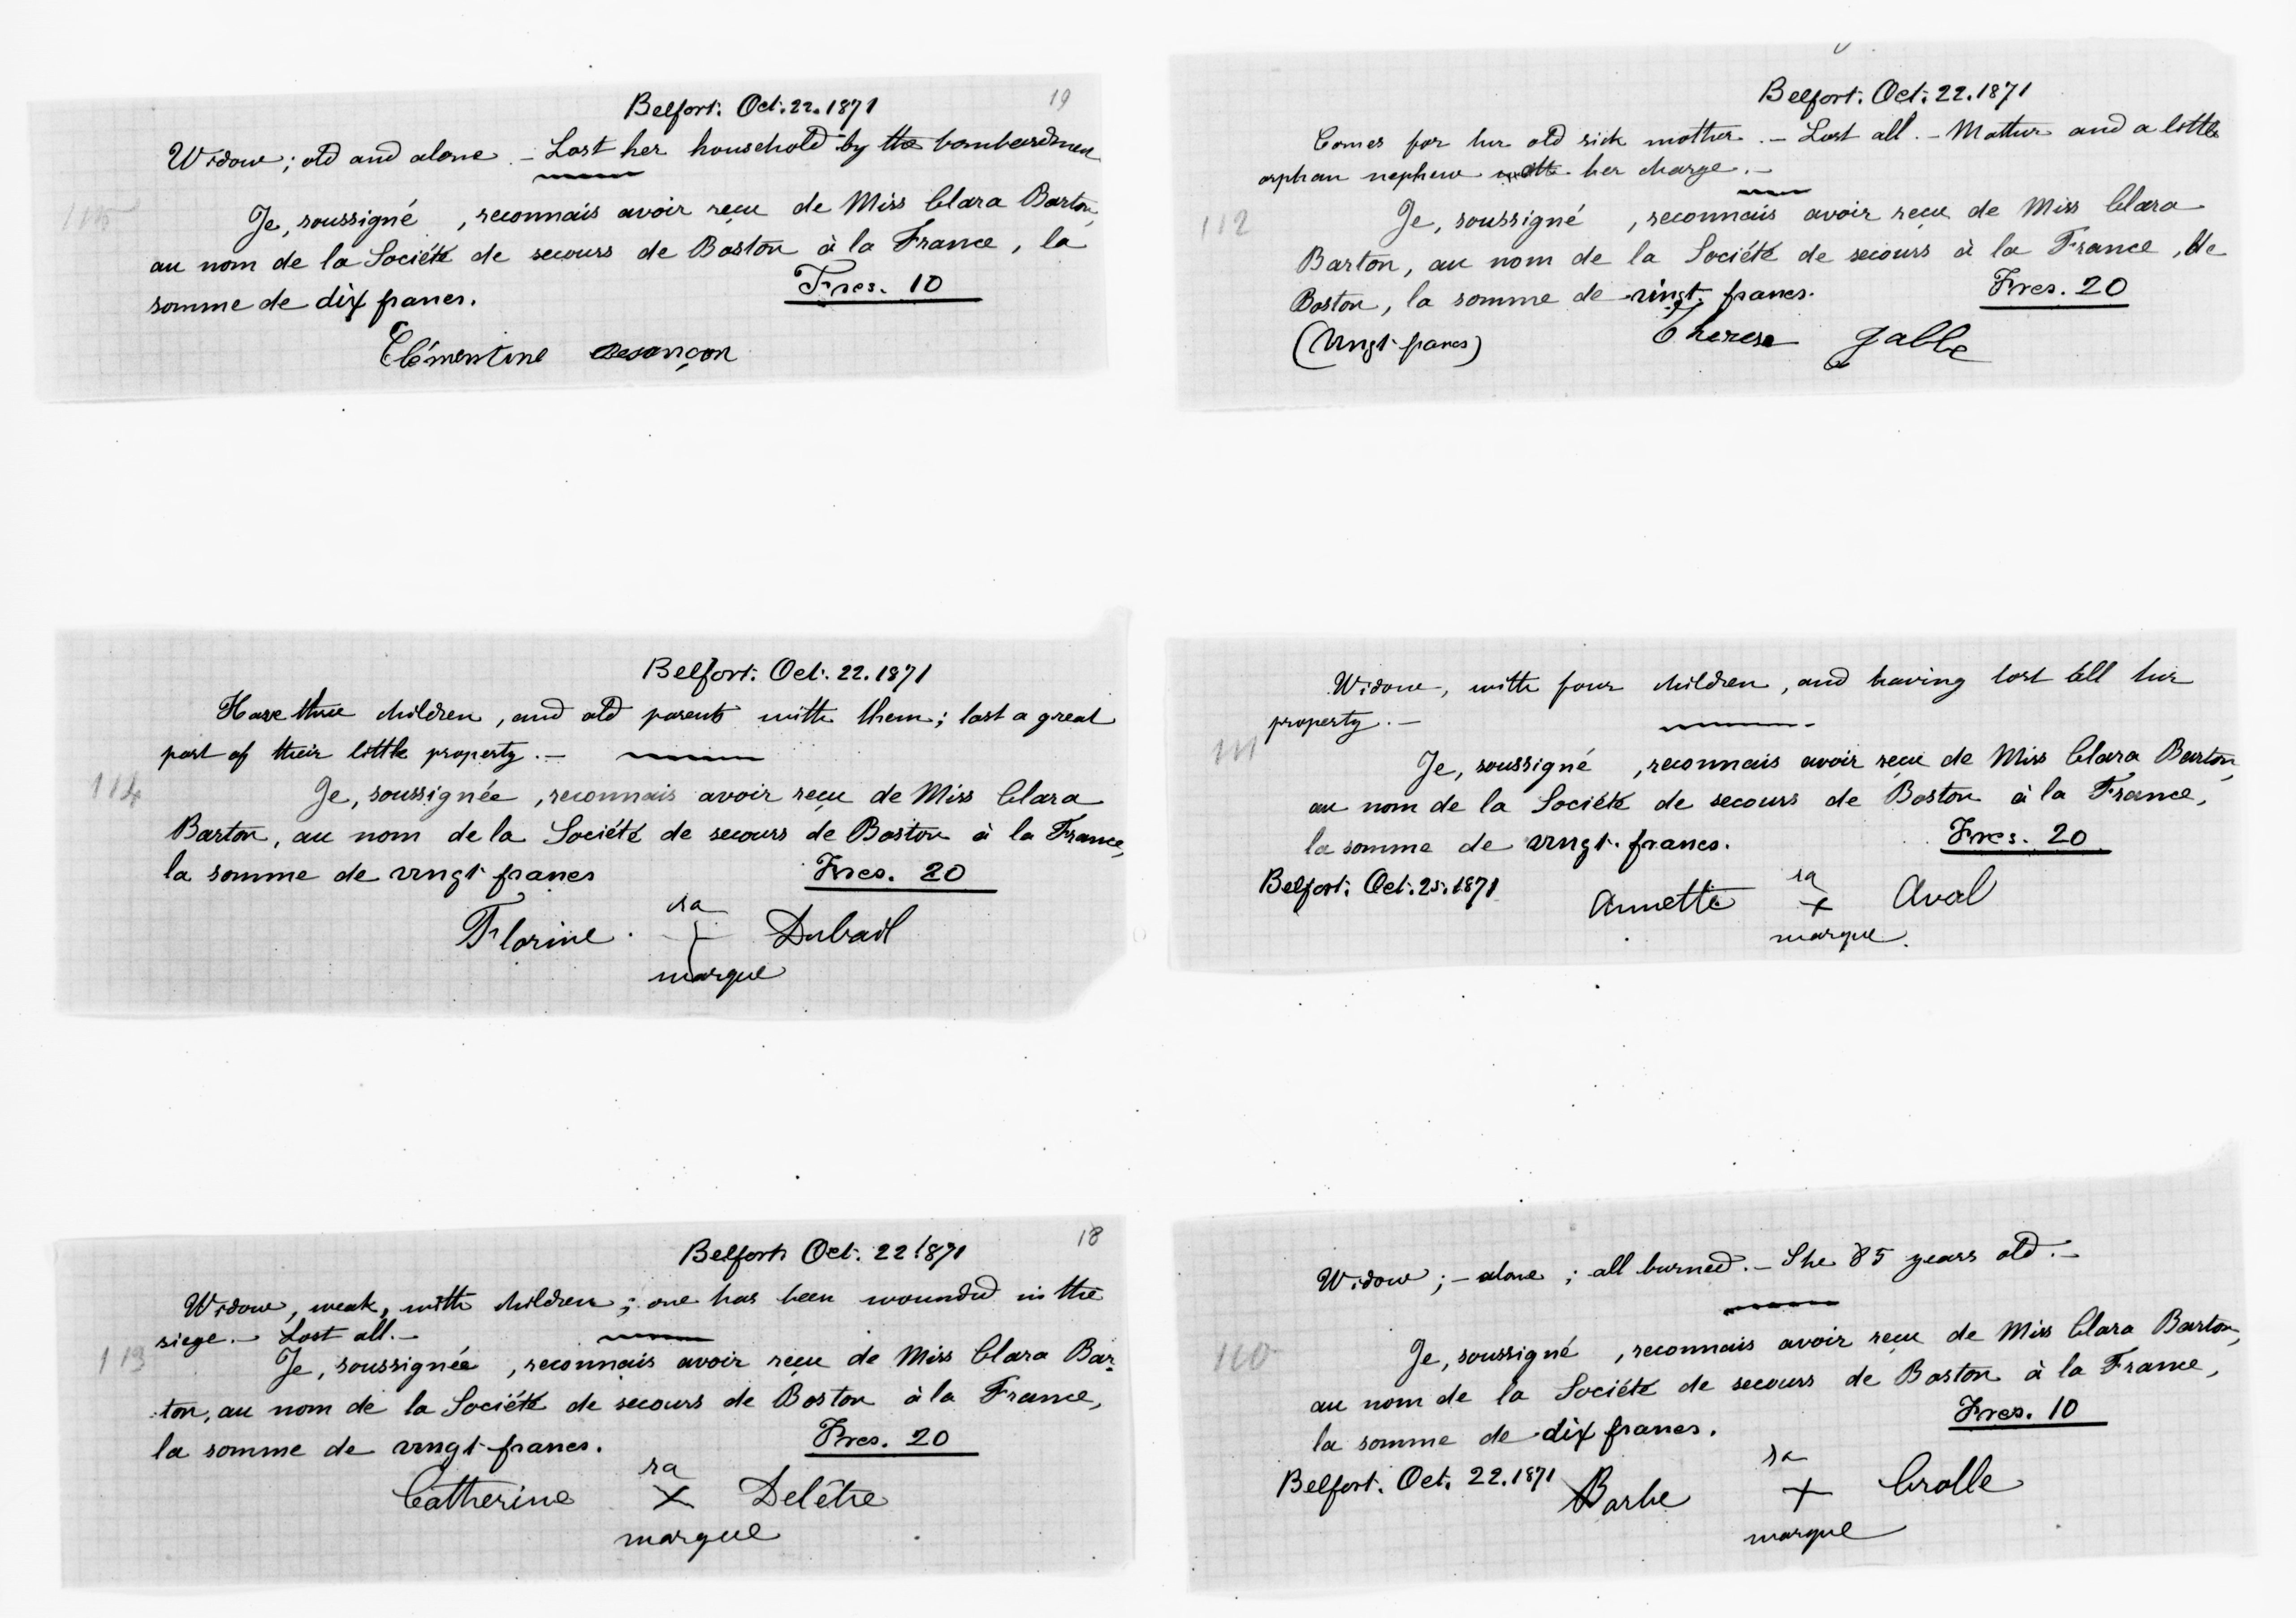 Belfort. Oct. 22. 1871
19
Widow; old and alone. - Lost her household by the bombardmen
115
Je, soussigné , reconnais avoir reçu de Miss Clara Barton,
au nom de la Société de secours de Boston à la France, la
somme de dix francs.
Frcs. 10
Clémentine Besançon
Belfort. Oct. 22. 1871
Have three children, and old parents with them; lost a great
part of their little property. -
114
Je, soussignée , reconnais avoir reçu de Miss Clara
Barton, au nom de la Société de secours de Boston à la France,
la somme de vingt francs
Frcs. 20
sa
Florine Dubail
marque
Belfort Oct. 22 1871
18
Widow, weak, with children; one has been wounded in the
siege. - Lost all. -
113
Je, soussignée , reconnais avoir reçu de Miss Clara Bar-
ton, au nom de la Société de secours de Boston à la France,
la somme de vingt francs.
Frcs. 20
sa
Catherine x Delêtre
marque
Belfort. Oct. 22. 1871
Comes for her old sick mother. - Lost all. - Mother and a little
orphan nephew her charge. -
112
Je, soussigné , reconnais avoir reçu de Miss Clara
Barton, au nom de la Société de secours à la France, de
Boston, la somme de vingt francs.
Frcs. 20
(Vingt francs)
Therese Gable
Widow, with four children, and having lost all her
property. -
111
Je, soussigné , reconnais avoir reçu de Miss Clara Barton,
au nom de la Société de secours de Boston à la France,
la somme de vingt francs.
Frcs. 20
Belfort. Oct. 25. 1871
sa
Annette x Aval
marque.
Widow; - alone; all burned. - She 85 years old. -
110
Je, soussigné , reconnais avoir reçu de Miss Clara Barton,
au nom de la Société de secours de Boston à la France,
la somme de dix francs.
Frcs. 10
Belfort. Oct. 22. 1871
sa
Barbe + Crolle
marque